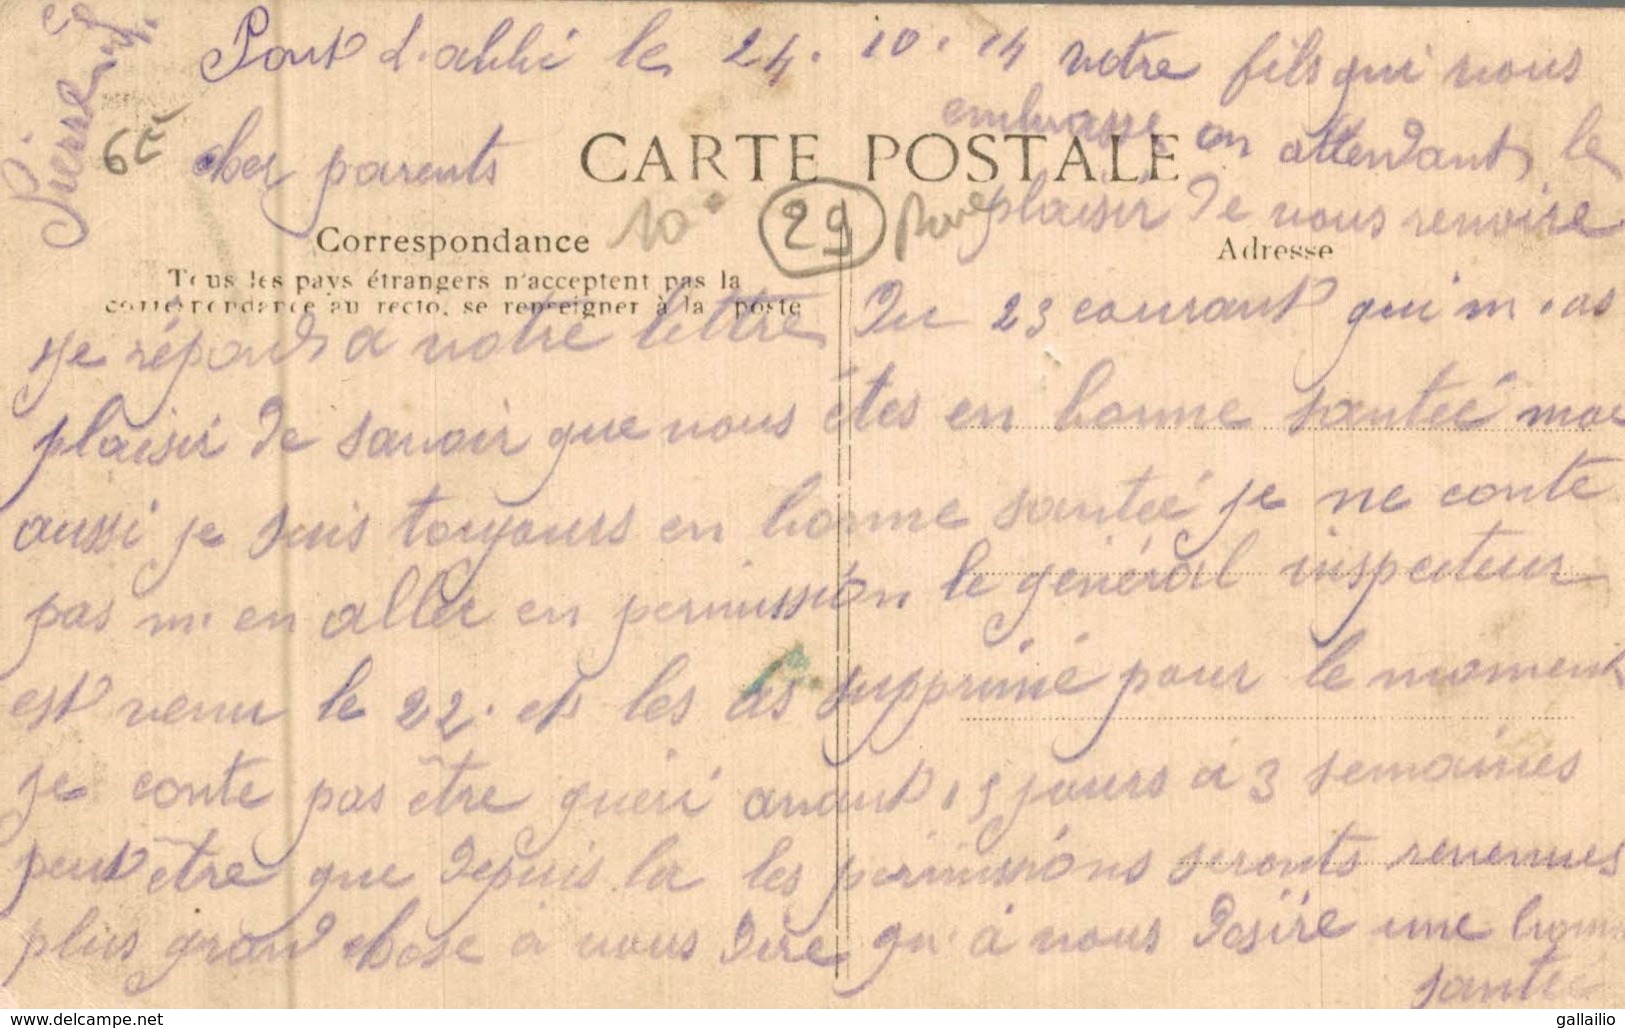 Pont d.abbé le 24. 10. 14
cher parents
CARTE POSTALE
Correspondance
Adresse
Tous les pays étrangers n'acceptent pas la
correspondance au recto, se renseigner à la poste
6€
10°
29
je réponds a votre lettre du 23 courant qui m.as
plaisir de savoir que vous êtes en bonne santeé moi
aussi je suis toujours en bonne santeé je ne conte
pas m.en aller en permission le général inspecteur
est venu le 22. et les as supprimé pour le moment
je conte pas être guéri avant 15 jours a 3 semaines
peut être que depuis la les permissions seronts revenues
plus grand chose a vous dire qu.à vous désiré une bonne
santeé
votre fils qui vous
embrasse en attendant le
plaisir de vous revoire
Pierre
gallailio www.delcampe.net